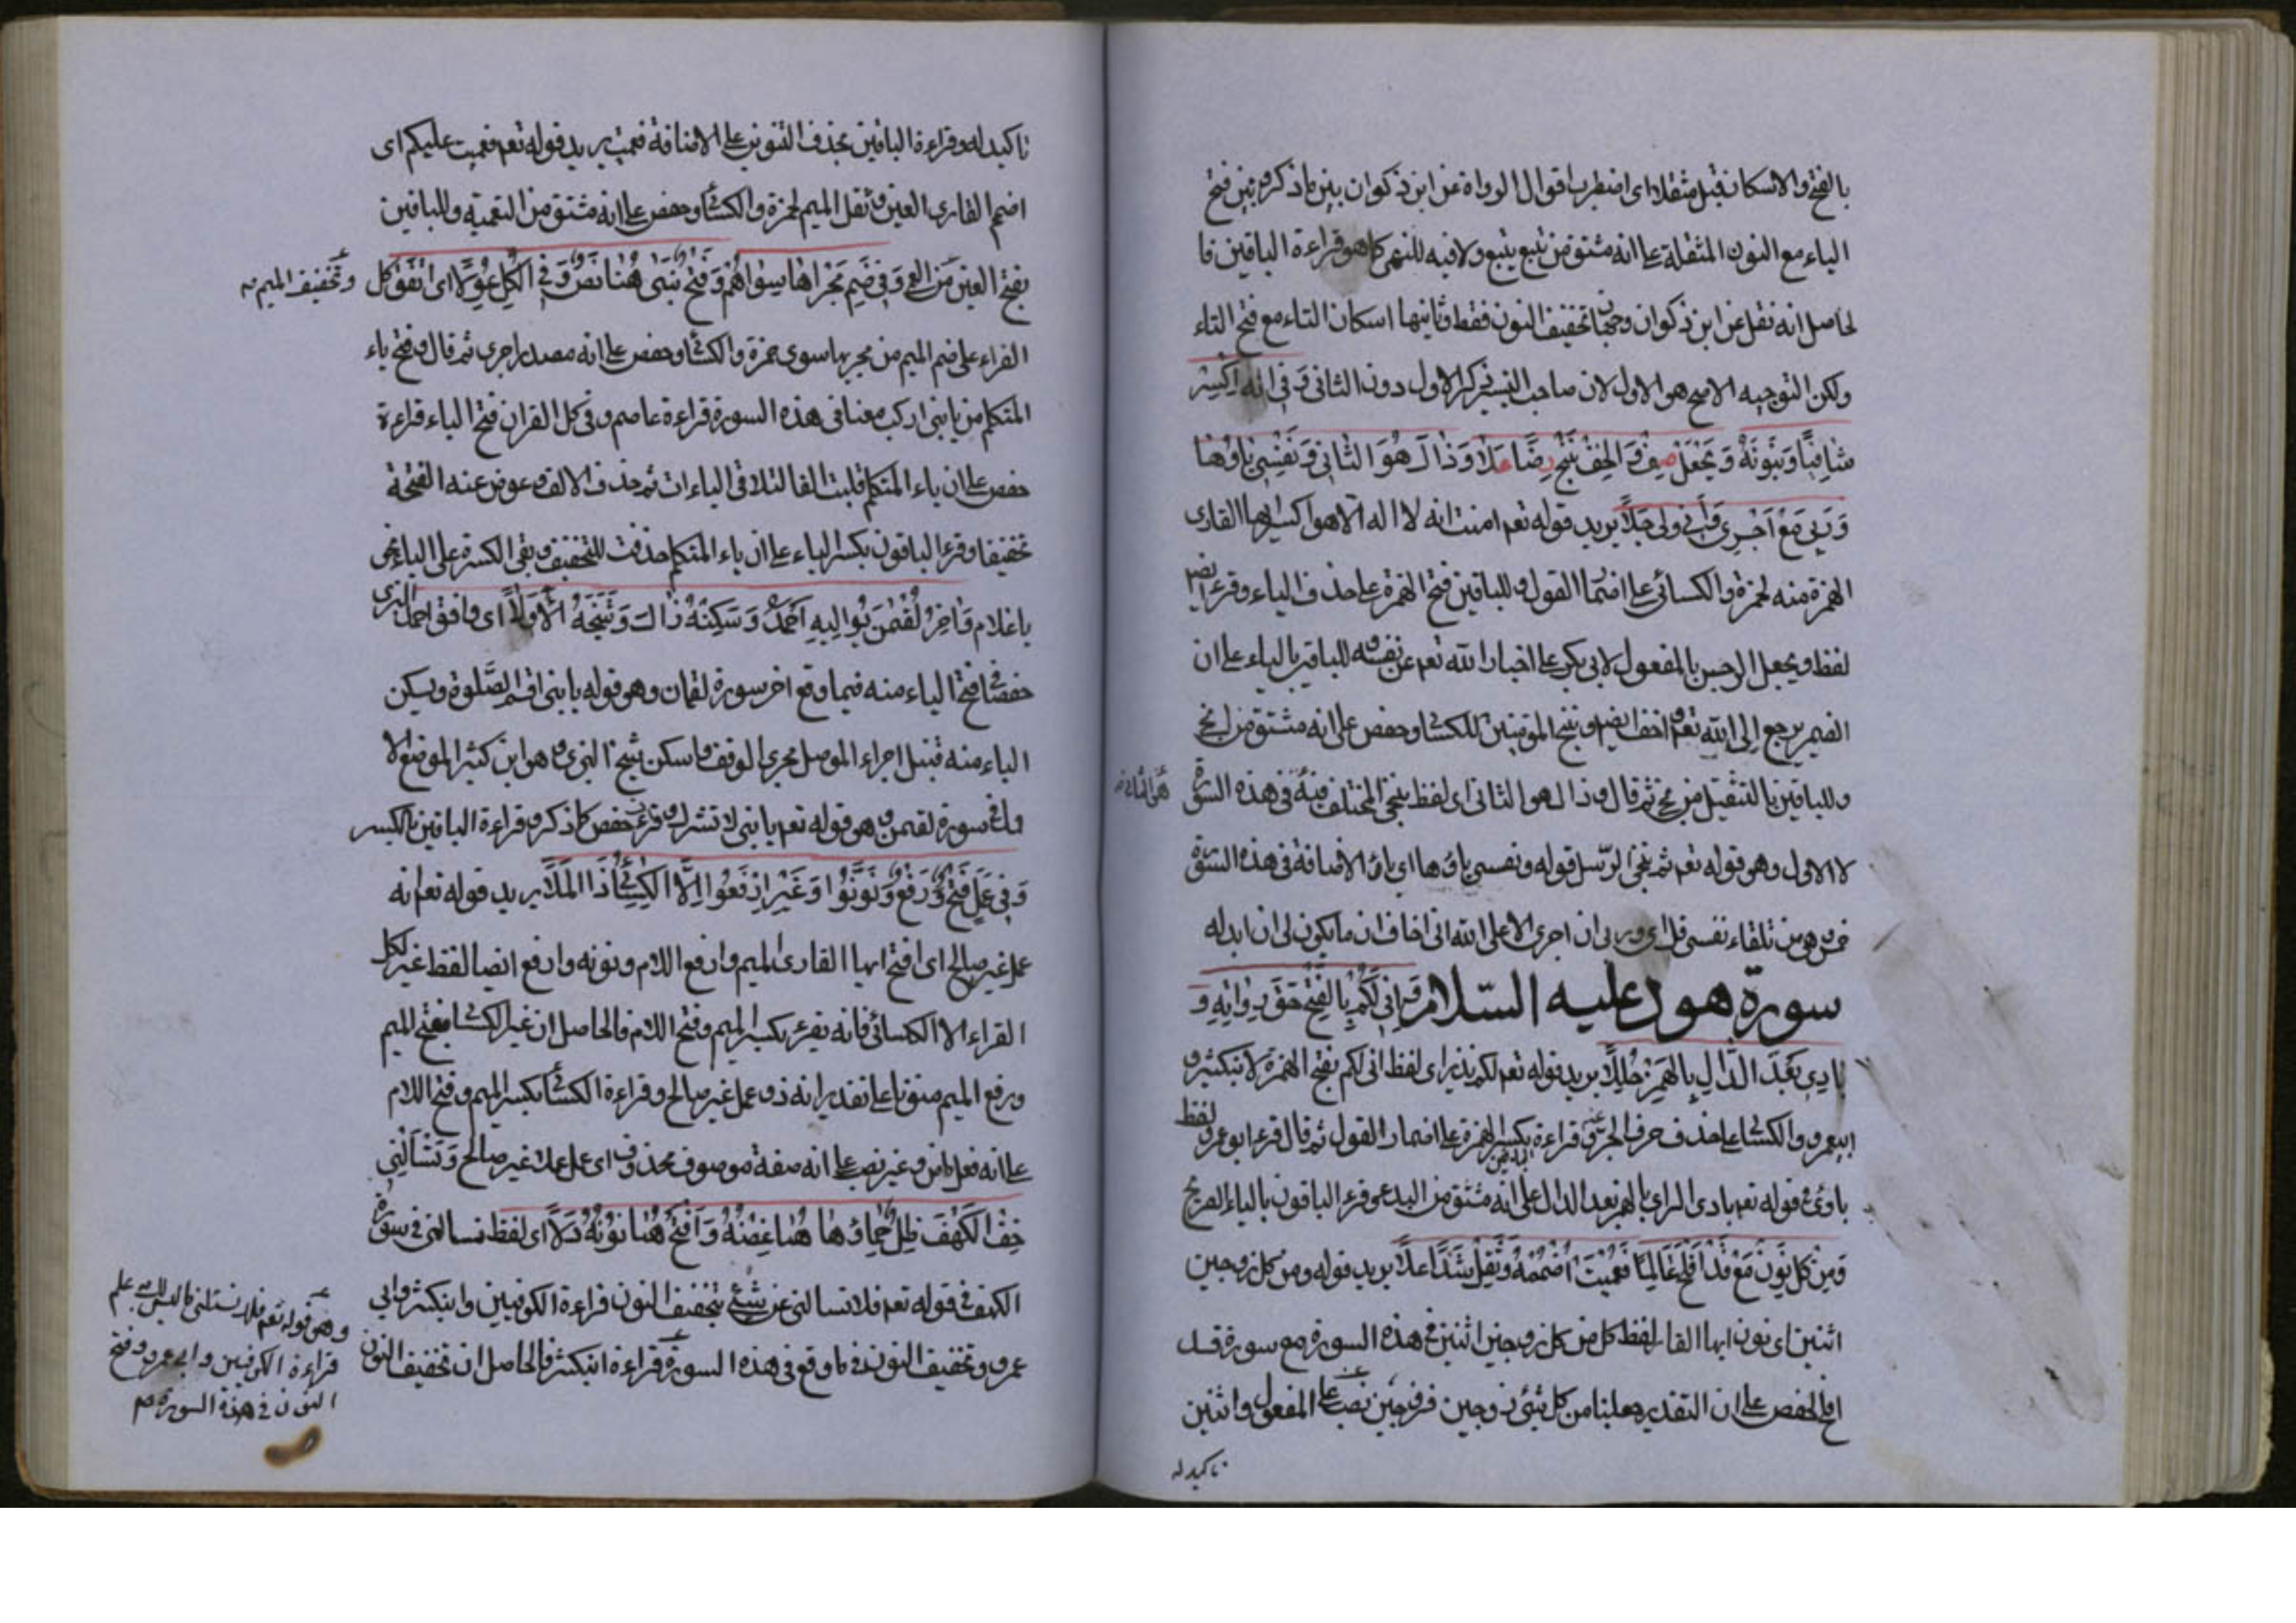 بالفتح والاسكان قبل مثقلا اى اضطرب اقوال الرواة عن ابن ذكوان بين ما ذكر وبين فتح
الباء مع النون المثقلة على انه مشتق من تبع يتبع ولا فيه للنهى كما هو قراءة الباقين فا
لحاصل انه نقل عن ابن ذكوان وجهان تخفيف النون فقط وثانيها اسكان التاء مع فتح الباء
ولكن التوجيه الاصح هو الاول لان صاحب التيسير ذكر الاول دون الثانى وَفى انه اكسر
شافيا وبنونه وَيجعل صف وَالخف ننج رضا علا وَذاك هُوَ الثانى وَنفسى ياؤها
وَرَبى مَعْ اَجْرِى وَانى ولى حلا يريد قوله تعم امنت انه لا اله الا هو اكسر ايها القارى
الهمزة منه لحمزة والكسائى على اضمار القول وللباقين فتح الهمزة على حذف الباء وقرء ايضا
لفظ ويجعل الرجس بالمفعول لابى بكر على اخبار الله تعم عن نفسه وللباقين بالياء على ان
الضمير يرجع الى الله تعم واخف ايضا وننج المؤمنين للكسائى وحفص على انه مشتق من انجى
وللباقين بالتثقيل من نجى ثم قال وذاك هو الثانى اى لفظ ننجى المختلف فيه فى هذه السورة
لا الاول وهو قوله تعم ثم ننجى الرسل قوله ونفسى ياؤها اى ياء الاضافة فى هذه السورة
خمس وهى من تلقاء نفسى قل اى وربى ان اجرى الا على الله انى اخاف ان ما يكون لى ان ابدله
سورة هود عليه السلام وَانى لَكُم بِالفَتح حَق رُوَاتِهِ وَ
بادِئَ بَعْدَ الدَّالِ بِالهَمْزِ حُلِّلا يريد قوله تعم لكم نذير اى لفظ انى لكم بفتح الهمزة لابن كثير و
ابى عمرو والكسائى على حذف حرف الجر وقراءة بكسر الهمزة على اضمار القول ثم قال قرء ابو عمرو لفظ
بادئ فى قوله تعم بادى الراى بالهمز بعد الدال على انه مشتق من البدء وقرء الباقون بالياء الصريح
وَمِنْ كل نَوِّنْ مَعْ قَدْ افلح عَالِمًا فعميت اضممه وَثقل شذا علا يريد قوله ومن كل زوجين
اثنين اى نون ايها القارى لفظ كل من كل زوجين اثنين فى هذه السورة مع سورة قد
افلح لحفص على ان التقدير جعلنا من كل شئ زوجين فزوجين نصب على المفعول واثنين
تاكيد له
تاكيد له وقراءة الباقين بحذف التنوين على الاضافة فعميت يريد قوله تعم فعميت عليكم اى
اضم القارى العين وثقل الميم لحمزة والكسائى وحفص على انه مشتق من التعمية وللباقين
بفتح العين من العمى وَفى ضم مَجراها سواهم وَفتح يا بُنَى هُنا نص وَفى الكل عولا اى اتفق كل
وتخفيف الميم
القراء على ضم الميم من مجريها سوى حمزة والكسائى وحفص على انه مصدر اجرى ثم قال وفتح ياء
المتكلم من يا بنى اركب معنا فى هذه السورة قراءة عاصم وفى كل القران فتح الياء قراءة
حفص على ان ياء المتكلم قلبت الفا لتلاقى الياءات ثم حذف الالف وعوض عنه الفتحة
تخفيفا وقرء الباقون بكسر الياء على ان ياء المتكلم حذفت للتخفيف وبقى الكسرة على الياء نحو
يا غلام وَاخر لقمن يُواليه اَحمد وَسَكنه زاك وَشيخه الاولا اى وافق احمد البزى
حفصا فى فتح الياء منه فيما وقع اخر سورة لقمان وهو قوله يا بنى اقم الصلوة ويسكن
الياء منه قنبل اجراء الموصل مجرى الوقف واسكن شيخ البزى وهو ابن كثير الموضع الا
ول فى سورة لقمن وهو قوله تعم يا بنى لا تشرك وقرء حفص كما ذكر وقراءة الباقين بالكسر
وَفى عمل فتح وَرَفع وَنَونوا وَغَير ارفعوا الا الكسائى ذا الملا يريد قوله تعم انه
عمل غير صالح اى افتح ايها القارى الميم وارفع اللام ونونه وارفع ايضا لفظ غير لكل
القراء الا الكسائى فانه يقرء بكسر الميم وفتح اللام فالحاصل ان غير الكسائى بفتح الميم
ورفع الميم منونا على تقدير انه ذو عمل غير صالح وقراءة الكسائى بكسر الميم وفتح اللام
على انه فعل ماض وغير نصب على انه صفة موصوف محذوف اى عمل عملا غير صالح وَتَسْأَلْنِى
خف الكهف ظل حما وَها هُنا غصنه وَافتح هُنا نونه دلا اى لفظ تسالنى فى سورة
الكهف فى قوله تعم فلا تسالنى عن شئ بتخفيف النون قراءة الكوفيين وابن كثير وابى
عمرو وتخفيف النون فى ما وقع فى هذه السورة قراءة ابن كثير فالحاصل ان تخفيف النون
وهو قوله تعم فلا تسئلنى ما ليس لك به علم
قراءة الكوفيين وابى عمرو وفتح
النون فى هذة السورة